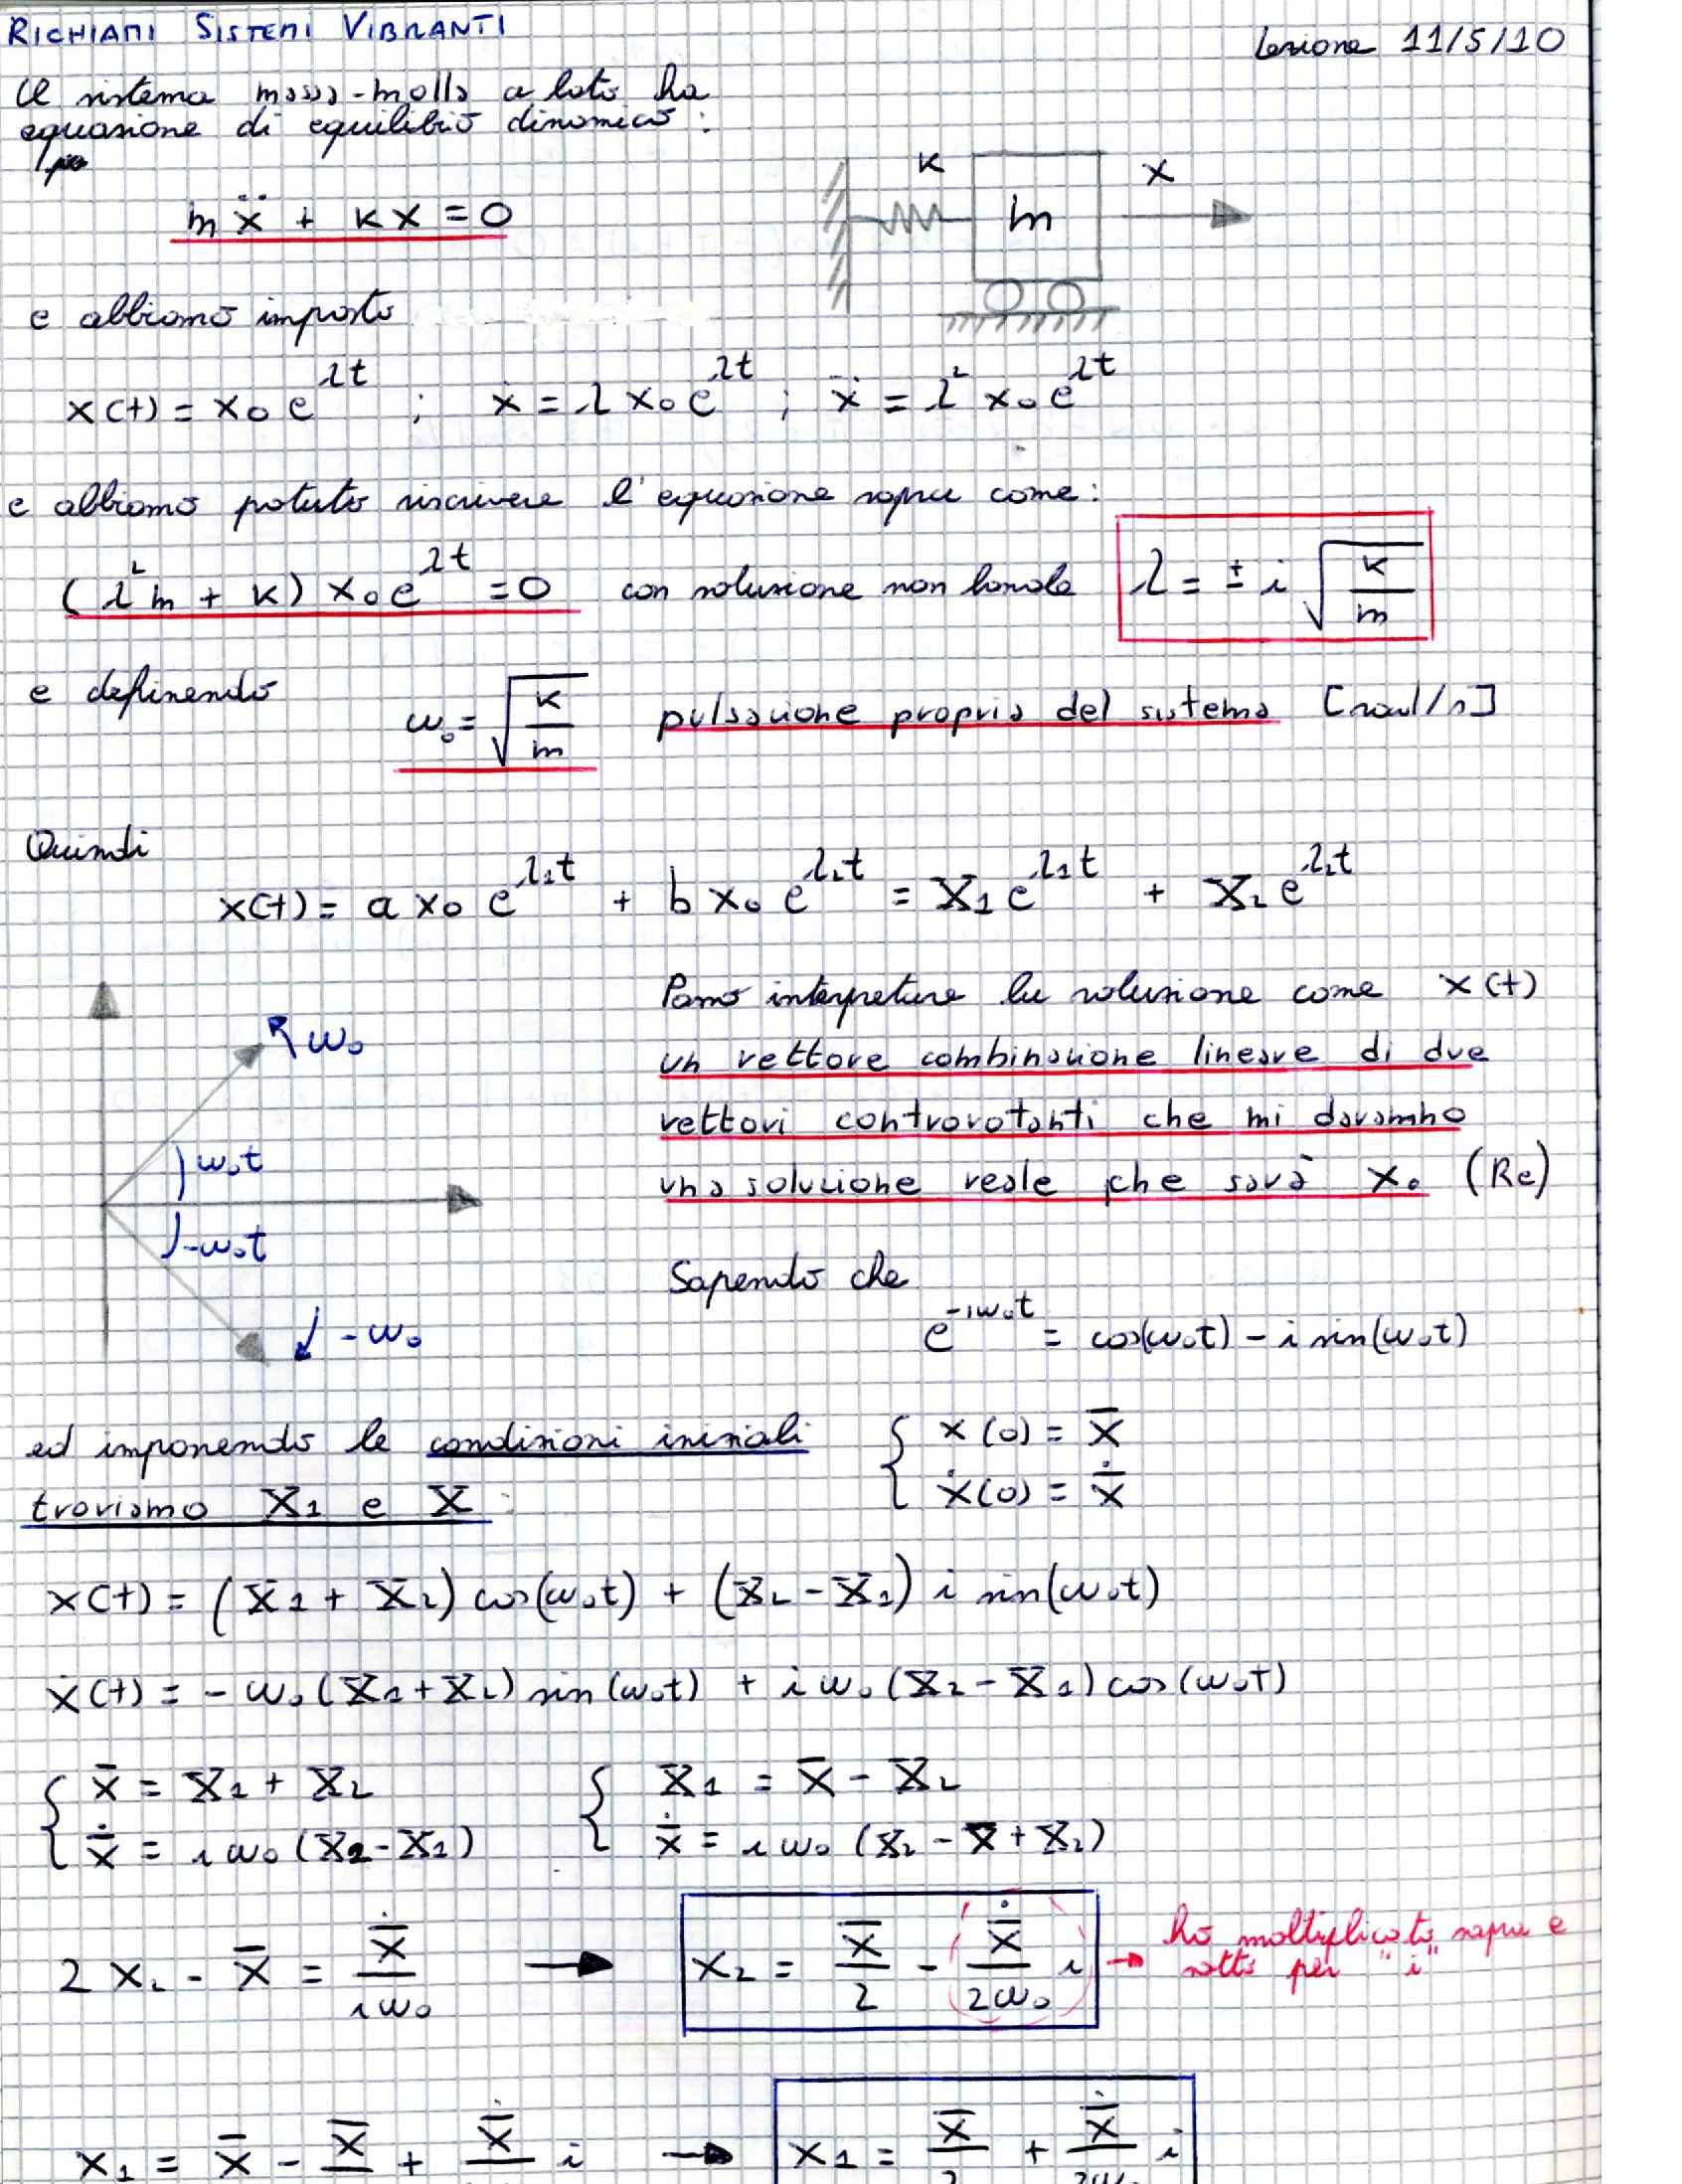 RICHIAMI SISTEMI VIBRANTI
Lezione 11/5/10
Il sistema massa-molla a lato ha
equazione di equilibrio dinamico:
m ẍ + K x = 0
K m x
e abbiamo imposto
x(t) = x₀ e^{λt} ; ẋ = λ x₀ e^{λt} ; ẍ = λ² x₀ e^{λt}
e abbiamo potuto riscrivere l'equazione sopra come:
(λ² m + K) x₀ e^{λt} = 0 con soluzione non banale λ = ± i √(K/m)
e definendo ω₀ = √(K/m) pulsazione propria del sistema [rad/s]
Quindi
x(t) = a x₀ e^{λ₁t} + b x₀ e^{λ₂t} = X₁ e^{λ₁t} + X₂ e^{λ₂t}
Posso interpretare la soluzione come x(t)
un vettore combinazione lineare di due
vettori controrotanti che mi daranno
una soluzione reale che sarà x₀ (Re)
ω₀
ω₀t
-ω₀t
-ω₀
Sapendo che
e^{-iω₀t} = cos(ω₀t) - i sin(ω₀t)
ed imponendo le condizioni iniziali { x(0) = x̄
troviamo X₁ e X : ẋ(0) = ẋ̄
x(t) = (X₁ + X₂) cos(ω₀t) + (X₂ - X₁) i sin(ω₀t)
ẋ(t) = - ω₀ (X₁ + X₂) sin(ω₀t) + i ω₀ (X₂ - X₁) cos(ω₀t)
{ x̄ = X₁ + X₂ { X₁ = x̄ - X₂
ẋ̄ = i ω₀ (X₂ - X₁) ẋ̄ = i ω₀ (X₂ - x̄ + X₂)
2 X₂ - x̄ = ẋ̄/(iω₀) → X₂ = x̄/2 - ẋ̄/(2ω₀) i → ho moltiplicato sopra e
sotto per "i"
X₁ = x̄ - x̄ + ẋ̄ i → X₁ = x̄/2 + ẋ̄/(2ω₀) i